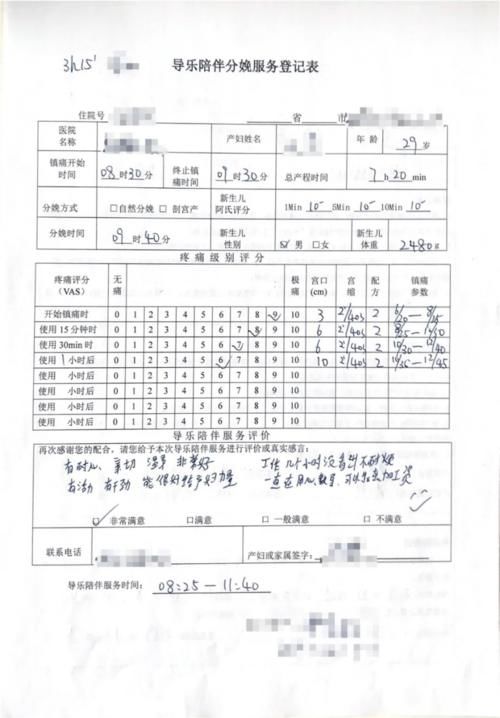 3h15'
导乐陪伴分娩服务登记表
住院号 省 市
医院名称 产妇姓名 年龄 29岁
镇痛开始时间 08时30分 终止镇痛时间 09时30分 总产程时间 7h20min
分娩方式 □自然分娩 □剖宫产 新生儿阿氏评分 1Min 10 5Min 10 10Min 10
分娩时间 09时40分 新生儿性别 ☑男 □女 新生儿体重 2480g
疼痛级别评分
疼痛评分(VAS) 无痛 极痛 宫口(cm) 宫缩 配方 镇痛参数
开始镇痛时 0 1 2 3 4 5 6 7 8 9 10 3 2'/40s 2
使用15分钟时 0 1 2 3 4 5 6 7 8 9 10 6 2'/40s 2
使用30min时 0 1 2 3 4 5 6 7 8 9 10 6 2'/40s 2
使用1小时后 0 1 2 3 4 5 6 7 8 9 10 10 2'/40s 2
使用 小时后 0 1 2 3 4 5 6 7 8 9 10
使用 小时后 0 1 2 3 4 5 6 7 8 9 10
使用 小时后 0 1 2 3 4 5 6 7 8 9 10
导乐陪伴服务评价
再次感谢您的配合，请您给予本次导乐陪伴服务进行评价或真实感言：
有耐心 亲切 温柔 非常好 工作几个小时没有不耐烦
有活力 有干劲 能很好给产妇力量 一直在用心教导，可以加工资
☑非常满意 □满意 □一般满意 □不满意
联系电话 产妇或家属签字：
导乐陪伴服务时间： 08:25—11:40